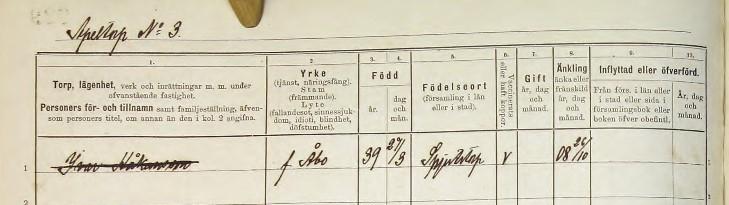 Apeltorp No 3.
1. 2. 3. 4. 5. 6. 7. 8. 9. 10.
Torp, lägenhet, verk och inrättningar m. m. under ofvanstående fastighet.
Personers för- och tillnamn samt familjeställning, äfvensom persones titel, om annan än den i kol. 2 angifna.
Yrke
(tjänst, näringsfång).
Stam
(främmande).
Lyte
(fallandesot, sinnessjukdom, idioti, blindhet, döfstumhet).
Född
år.
dag och mån.
Födelseort
(församling i län eller i stad).
Vaccinerats eller haft koppor.
Gift
år, dag och månad.
Änkling
änka eller frånskild år, dag och månad.
Inflyttad eller öfverförd.
Från förs. i län eller i stad eller sida i församlingsbok eller boken öfver obefintl.
År, dag och månad.
1 Ivar Håkansson f Åbo 39 27/3 v 08 26/10 1